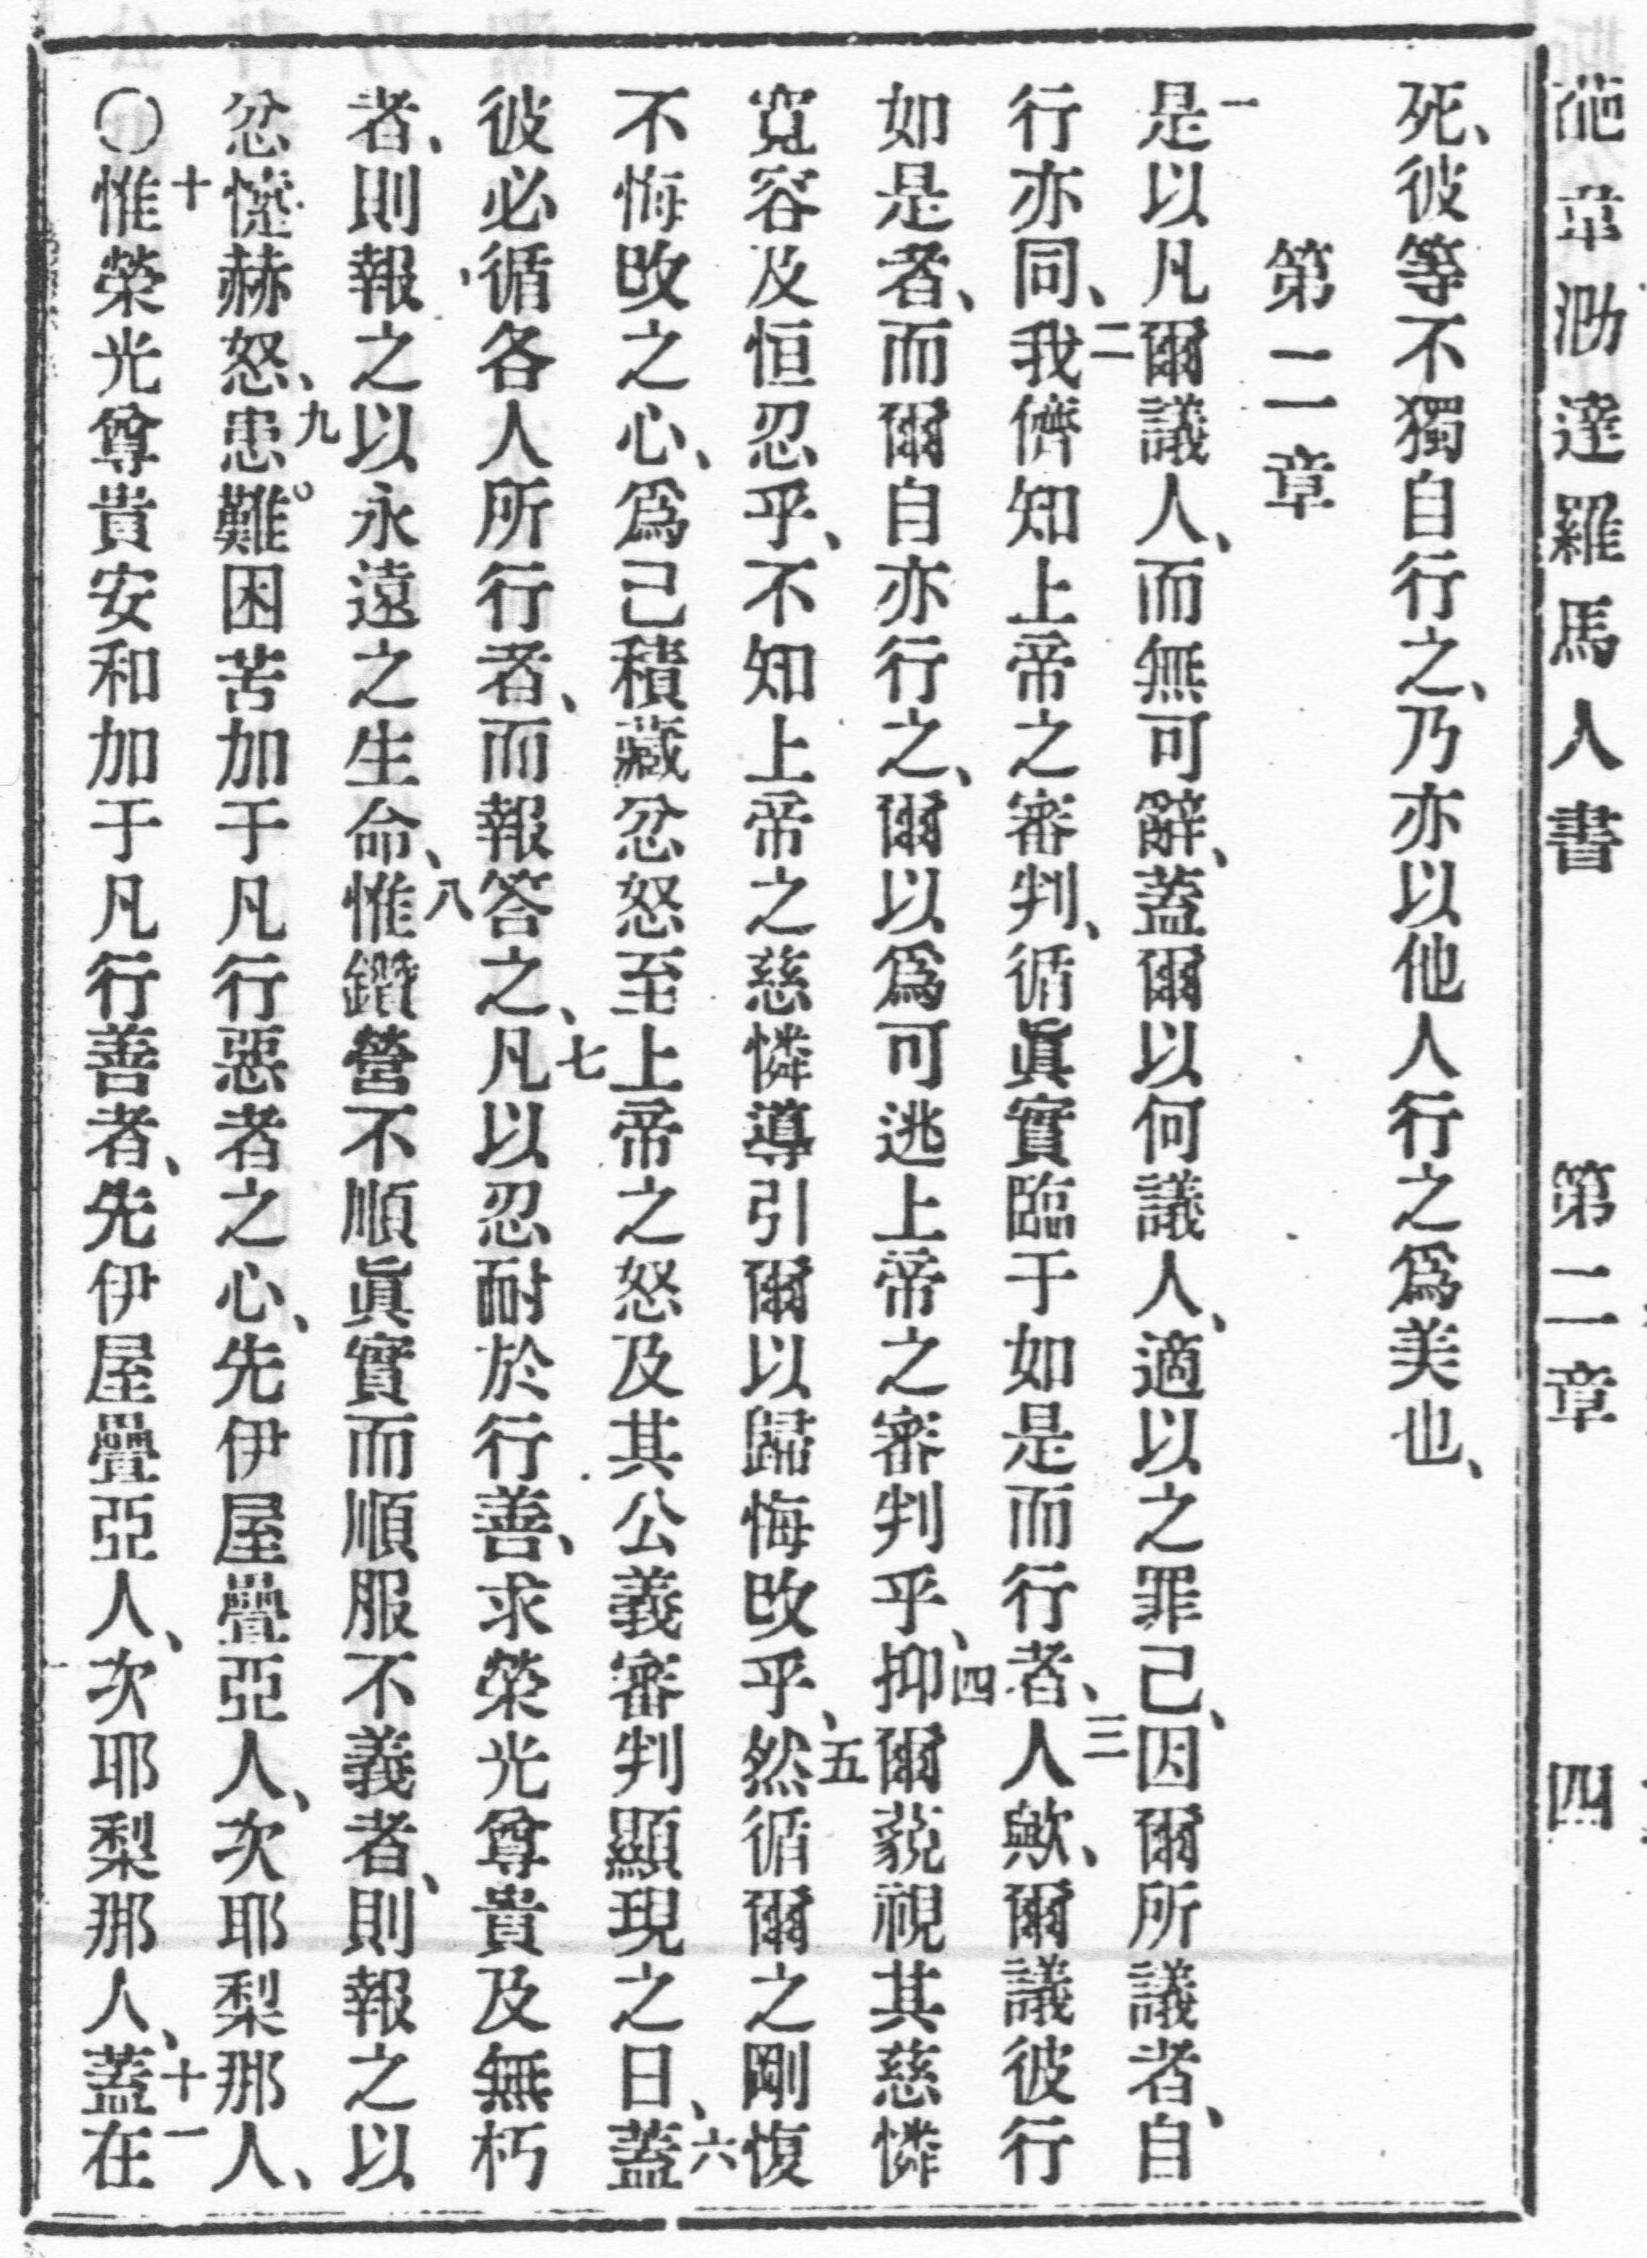 葩韋泐達羅馬人書 第二章 四
死、彼等不獨自行之、乃亦以他人行之爲美也、
第二章
一是以凡爾議人、而無可辭、蓋爾以何議人、適以之罪己、因爾所議者、自
行亦同、二我儕知上帝之審判、循眞實臨于如是而行者、三人歟、爾議彼行
如是者、而爾自亦行之、爾以爲可逃上帝之審判乎、四抑爾藐視其慈憐
寬容及恒忍乎、不知上帝之慈憐導引爾以歸悔改乎、五然循爾之剛愎
不悔改之心、爲己積藏忿怒至上帝之怒及其公義審判顯現之日、六蓋
彼必循各人所行者、而報答之、七凡以忍耐於行善、求榮光尊貴及無朽
者、則報之以永遠之生命、八惟鑽營不順眞實而順服不義者、則報之以
忿懥赫怒、九患難。困苦加于凡行惡者之心、先伊屋疊亞人、次耶梨那人、
〇十惟榮光尊貴安和加于凡行善者、先伊屋疊亞人、次耶梨那人、十一蓋在